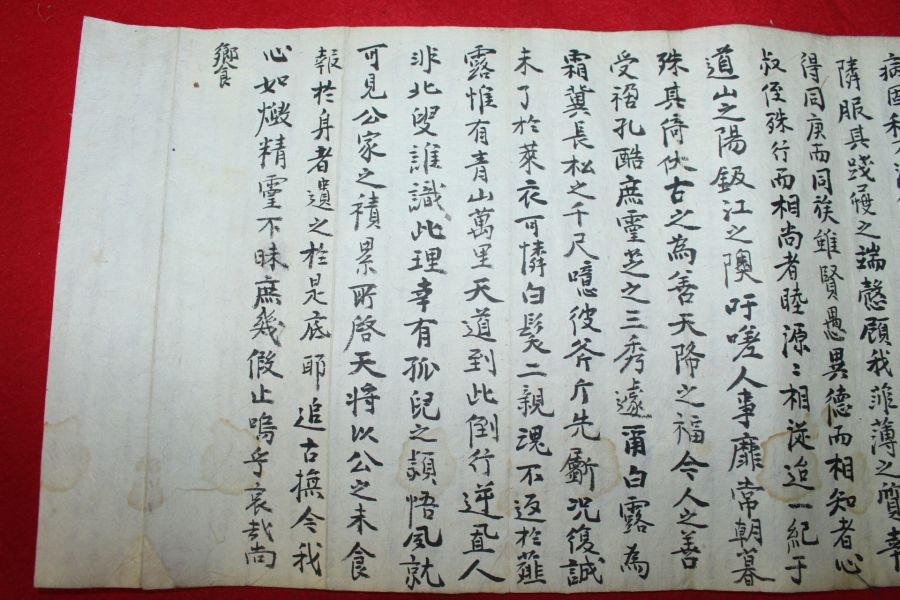 病因利
隣服其踐履之端慤顧我菲薄之質幸
得同庚而同族雖賢愚異德而相知者心
叔侄殊行而相尚者睦源源相從迨一紀于
道山之陽鈒江之隩吁嗟人事靡常朝暮
殊其倚伏古之為善天降之福今人之善
受禍孔酷庶靈芝之三秀遽爾白露為
霜冀長松之千尺噫彼斧斤先斸況復誠
未了於萊衣可憐白髮二親魂不返於薤
露惟有青山萬里天道到此倒行逆且人
非北叟誰識此理幸有孤兒之頴悟夙就
可見公家之積累所啓天將以公之未食
報於身者遺之於是底耶追古撫今我
心如燬精靈不昧庶幾假止嗚乎哀哉尚
饗